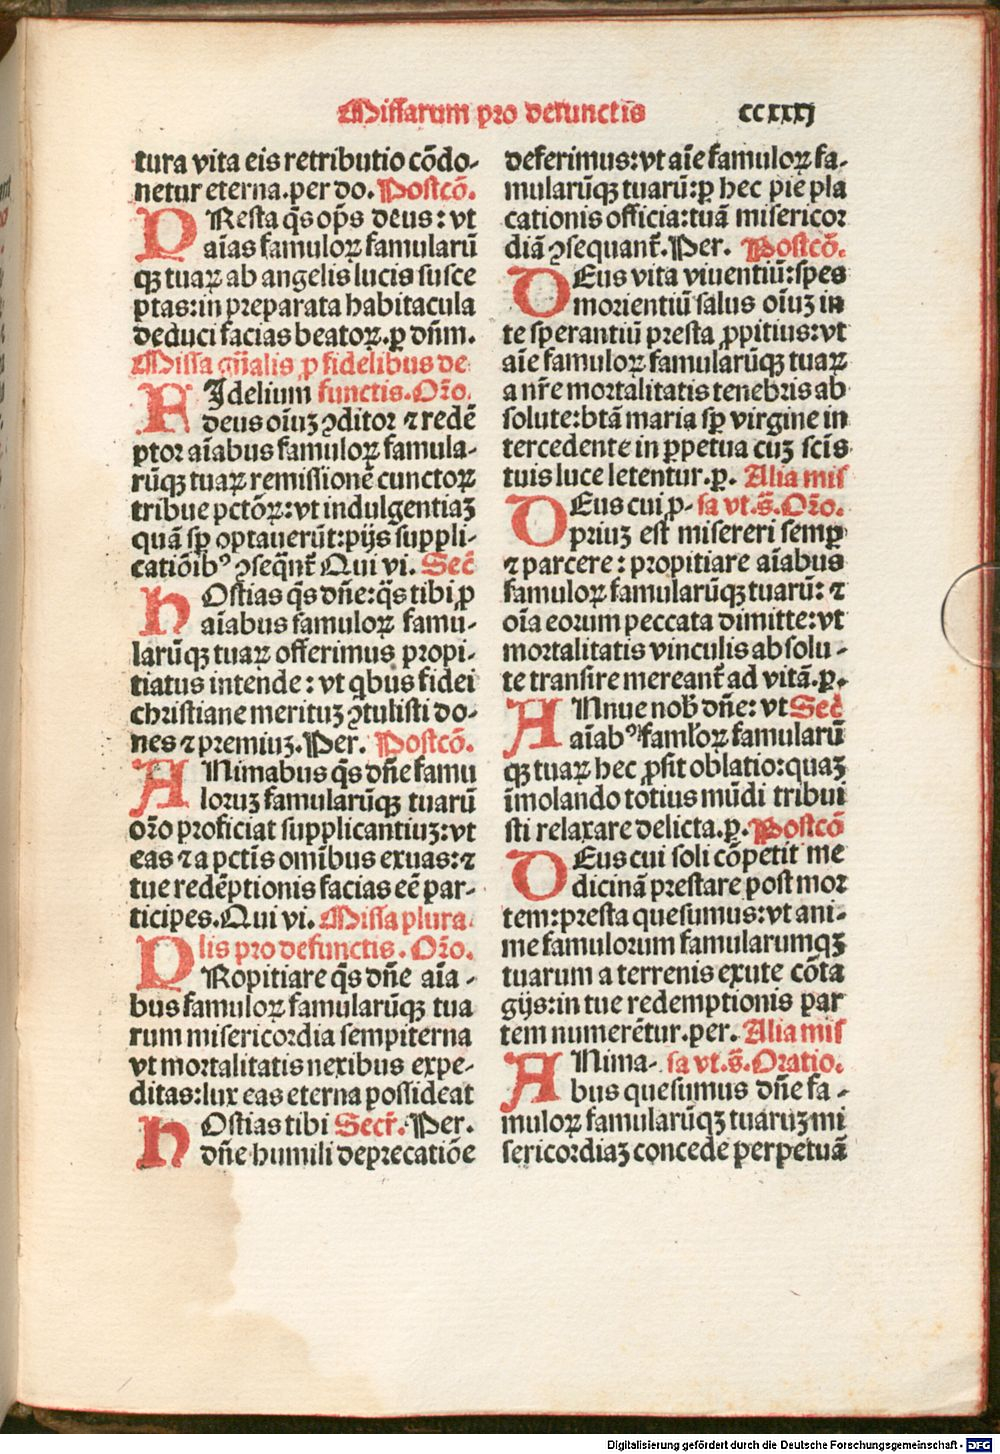 Missarum pro defunctis ccxxxj
tura vita eis retributio cōdo-
netur eterna.per do. Postcō.
PResta q̄s op̄s deus: vt
aīas famuloꝝ famularū
qꝫ tuaꝝ ab angelis lucis susce
ptas:in preparata habitacula
deduci facias beatoꝝ.ꝑ dn̄m.
Missa gn̄alis ꝓ fidelibus de
FIdelium functis. Oꝛo.
deus oīuꝫ ꝯditor ⁊ redē
ptor aīabus famuloꝝ famula-
rūqꝫ tuaꝝ remissionē cunctoꝝ
tribue pctōꝝ:vt indulgentiaꝫ
quā sꝑ optauerūt:pijs suppli-
catiōibꝰ ꝯseqn̄t̄ Qui vi. Sec̄
HOstias q̄s dn̄e:q̄s tibi ꝓ
aīabus famuloꝝ famu-
larūqꝫ tuaꝝ offerimus propi-
tiatus intende: vt qbus fidei
christiane merituꝫ ꝯtulisti do-
nes ⁊ premiuꝫ. Per. Postcō.
ANimabus q̄s dn̄e famu
loruꝫ famularūqꝫ tuarū
oꝛo proficiat supplicantiuꝫ:vt
eas ⁊ a pctīs omībus exuas:⁊
tue redēptionis facias eē par-
ticipes. Qui vi. Missa plura
lis pro defunctis. Oꝛo.
PRopitiare q̄s dn̄e aīa-
bus famuloꝝ famularūqꝫ tua
rum misericordia sempiterna
vt mortalitatis nexibus expe-
ditas:lux eas eterna possideat
HOstias tibi Secr̄. Per.
dn̄e humili deprecatiōe
deferimus:vt aīe famuloꝝ fa-
mularūqꝫ tuarū:ꝑ hec pie pla
cationis officia:tuā misericoꝛ
diā ꝯsequant̄. Per. Postcō.
DEus vita viuentiū:spes
morientiū salus oīuꝫ in
te sperantiū presta ꝓpitius:vt
aīe famuloꝝ famularūqꝫ tuaꝝ
a nr̄e mortalitatis tenebris ab
solute:btā maria sꝑ virgine in
tercedente in ꝑpetua cuꝫ scīs
tuis luce letentur.ꝑ. Alia mis
DEus cui ꝓ- sa vt.s̄. Oꝛo.
priuꝫ est misereri semꝑ
⁊ parcere: propitiare aīabus
famuloꝝ famularūqꝫ tuarū: ⁊
oīa eorum peccata dimitte:vt
mortalitatis vinculis absolu-
te transire mereant̄ ad vitā.ꝑ.
ANnue nob̄ dn̄e: vt Sec̄
aīabꝰ famloꝝ famularū
qꝫ tuaꝝ hec ꝓsit oblatio:quaꝫ
īmolando totius mūdi tribui
sti relaxare delicta.ꝑ. Postcō
DEus cui soli cōpetit me
dicinā prestare post moꝛ
tem:presta quesumus:vt ani-
me famulorum famularumqꝫ
tuarum a terrenis exute cōta
gijs:in tue redemptionis par
tem numerētur.per. Alia mis
ANima- sa vt.s̄. Oratio.
bus quesumus dn̄e fa-
muloꝝ famularūqꝫ tuaruꝫ mi
sericordiaꝫ concede perpetuā
Digitalisierung gefördert durch die Deutsche Forschungsgemeinschaft - DFG